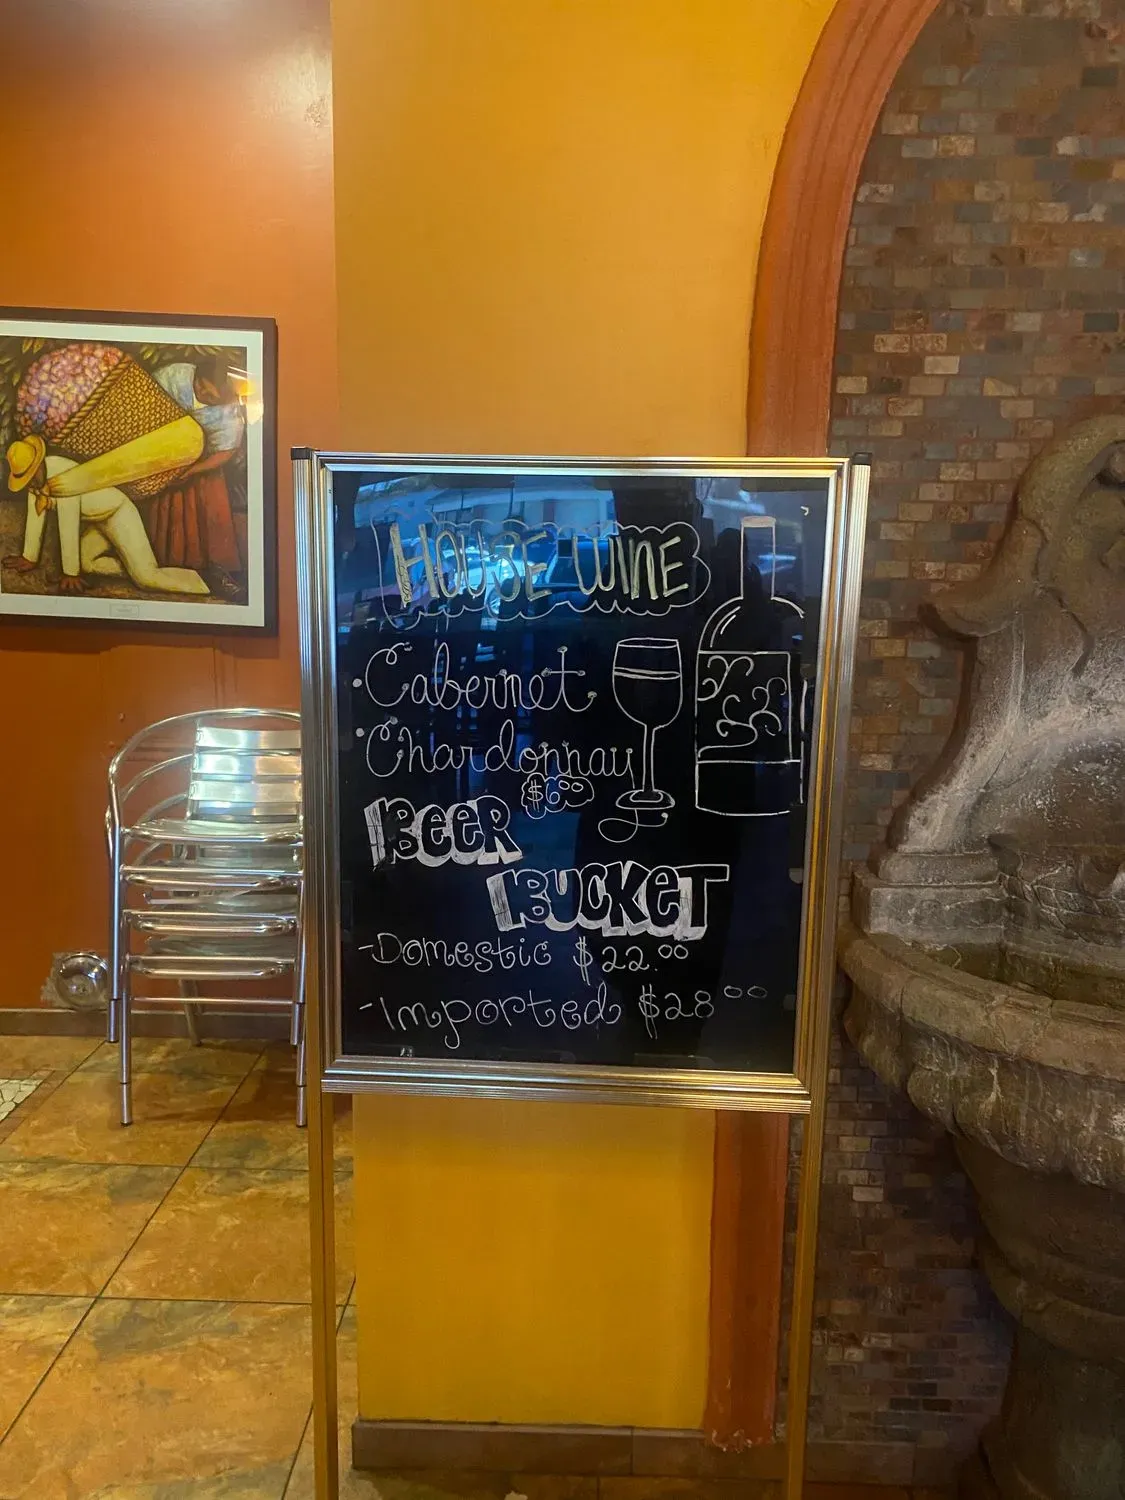 HOUSE WINE
• Cabernet
• Chardonnay
$6.00
BEER
BUCKET
-Domestic $22.00
-Imported $28 00